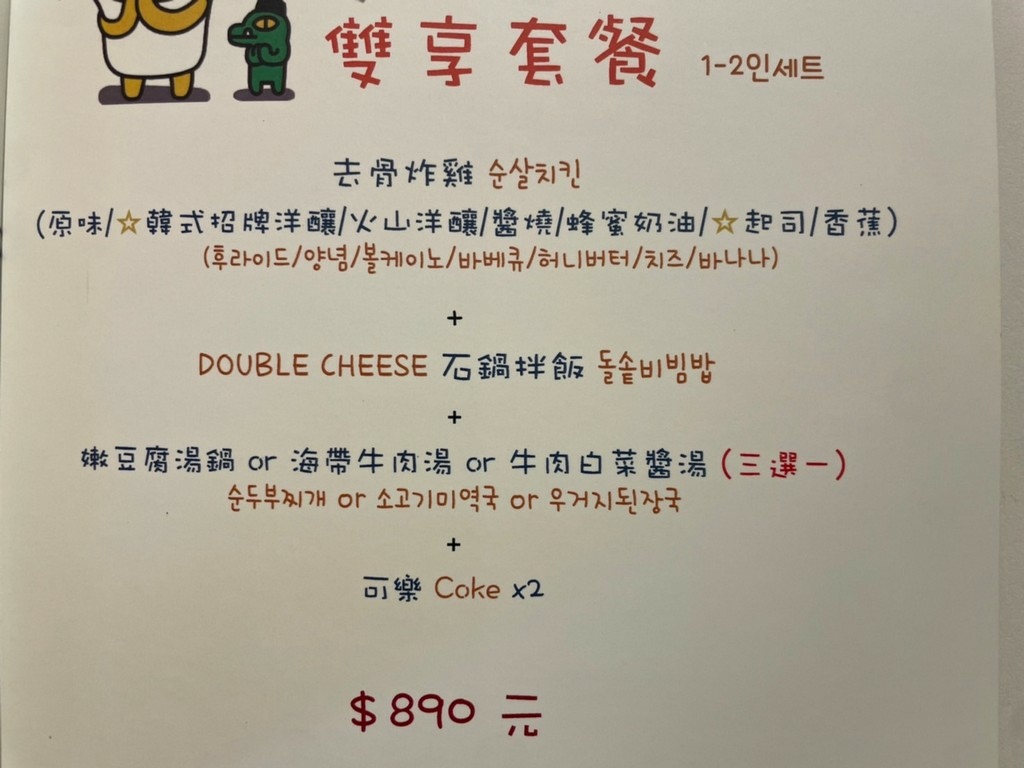 雙享套餐 1-2인세트
去骨炸雞 순살치킨
(原味/☆韓式招牌洋釀/火山洋釀/醬燒/蜂蜜奶油/☆起司/香蕉)
(후라이드/양념/볼케이노/바베큐/허니버터/치즈/바나나)
+
DOUBLE CHEESE 石鍋拌飯 돌솥비빔밥
+
嫩豆腐湯鍋 or 海帶牛肉湯 or 牛肉白菜醬湯 (三選一)
순두부찌개 or 소고기미역국 or 우거지된장국
+
可樂 Coke x2
$890 元